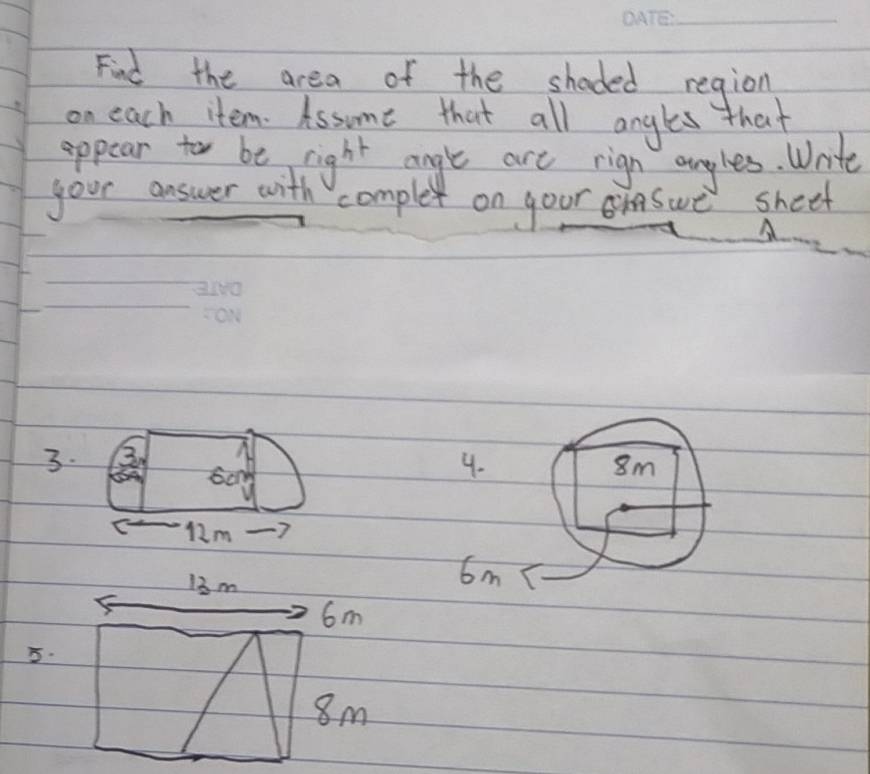 DATE:
Find the area of the shaded region
on each item. Assume that all angles that
appear to be right angle are rign angles. Write
your answer with complet on your answe sheet
DATE
NO.:
3.
3m
6cm
12m
4.
8m
6m
13m
6m
5.
8m